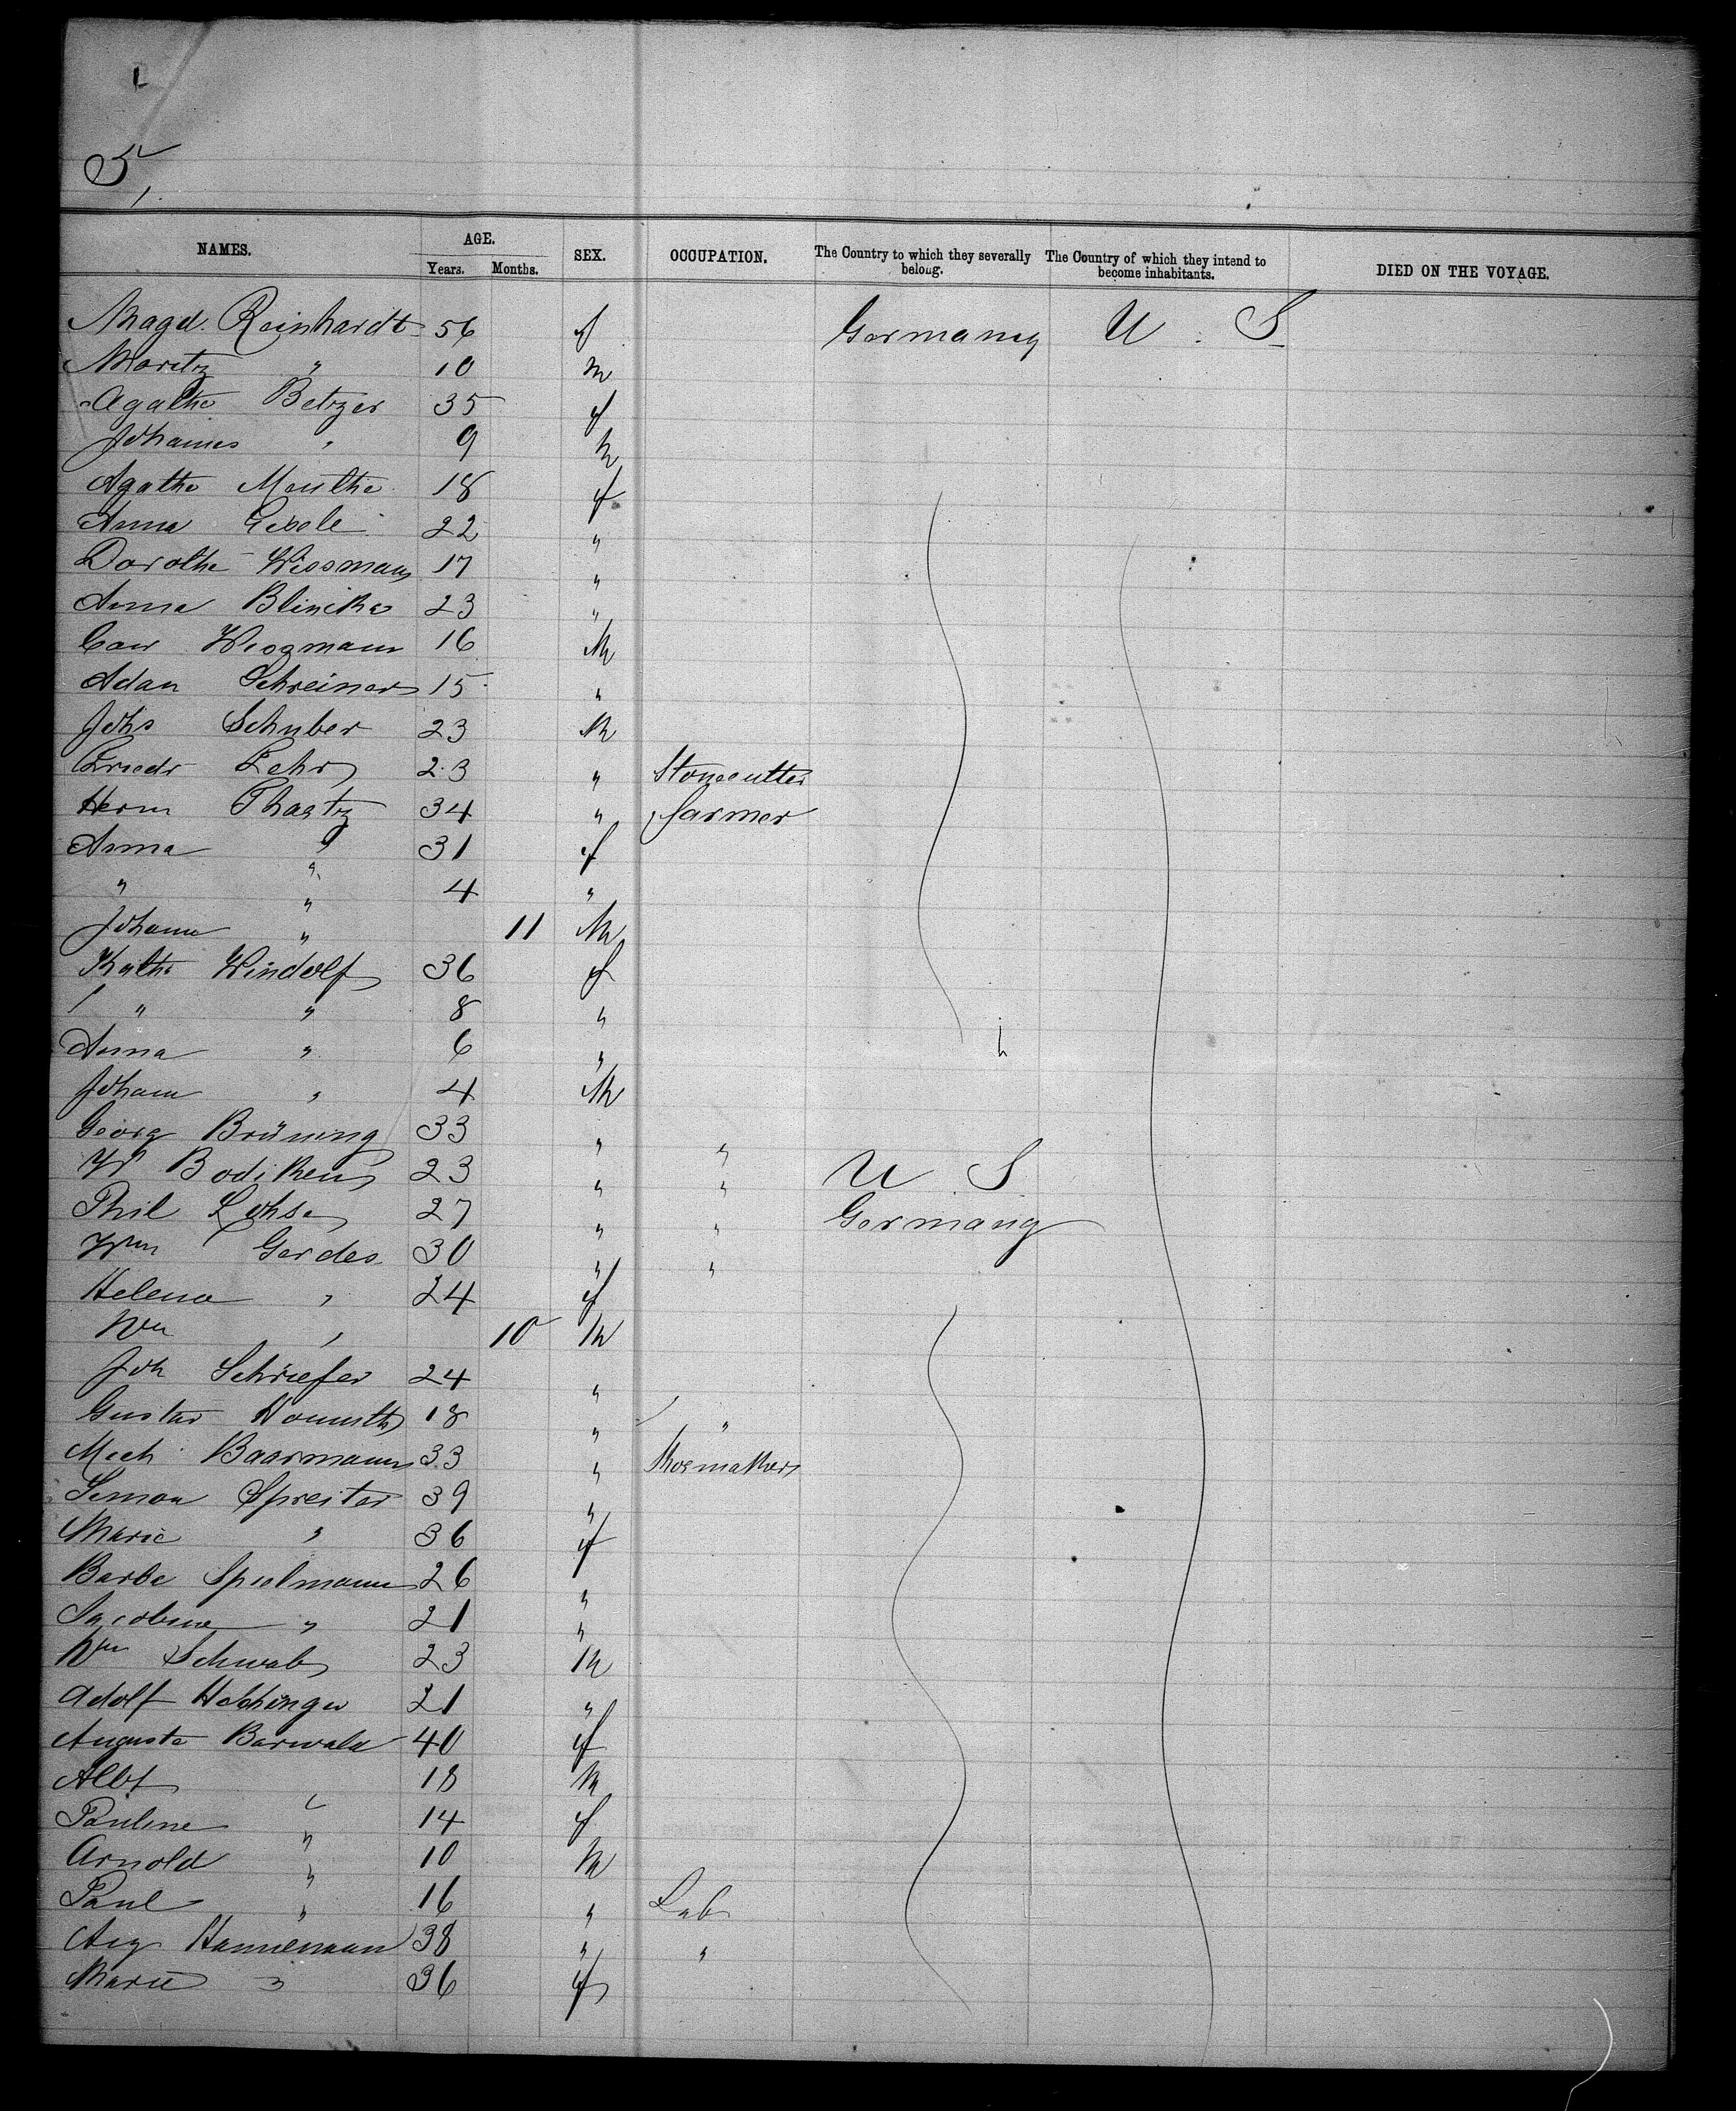 5,
NAMES. AGE. SEX. OCCUPATION. The Country to which they severally belong. The Country of which they intend to become inhabitants. DIED ON THE VOYAGE.
Years. Months.
Magd. Reinhardt 56 f Germany U. S
Moritz " 10 m
Agathe Betzer 35 f
Johannes " 9 m
Agathe Mauthe 18 f
Anna 22 "
Dorothe Wissmann 17 "
Anna 23 "
Wegmann 16 M
Adan Schreiner 15 "
Johs Schuber 23 M
Friedr Lehr 23 " Stonecutter
Herm 34 " farmer
Anna " 31 f
" " 4 "
Johann " 11 M
Kathr Windolf 36 f
" " 8 "
Anna " 6 "
Johann " 4 M
Georg Brüning 33 " "
W Bodiken 23 " " U. S.
Phil Lohse 27 " " Germany
Wm Gerdes 30 " "
Helena " 24 f
Wm " 10 M
Joh Schriefer 24 "
Gustav 18 " "
Mich Baarmann 33 " Shoemaker
Simon Spreiter 39 "
Marie " 36 f
Barbe Spielmann 26 "
Jacobine " 21 "
Wm Schwab 23 M
Adolf 21 "
Auguste Barwald 40 f
Albt " 18 M
Pauline " 14 f
Arnold " 10 M
Paul " 16 " Lab
Aug Hannemann 38 " "
Marie " 36 f